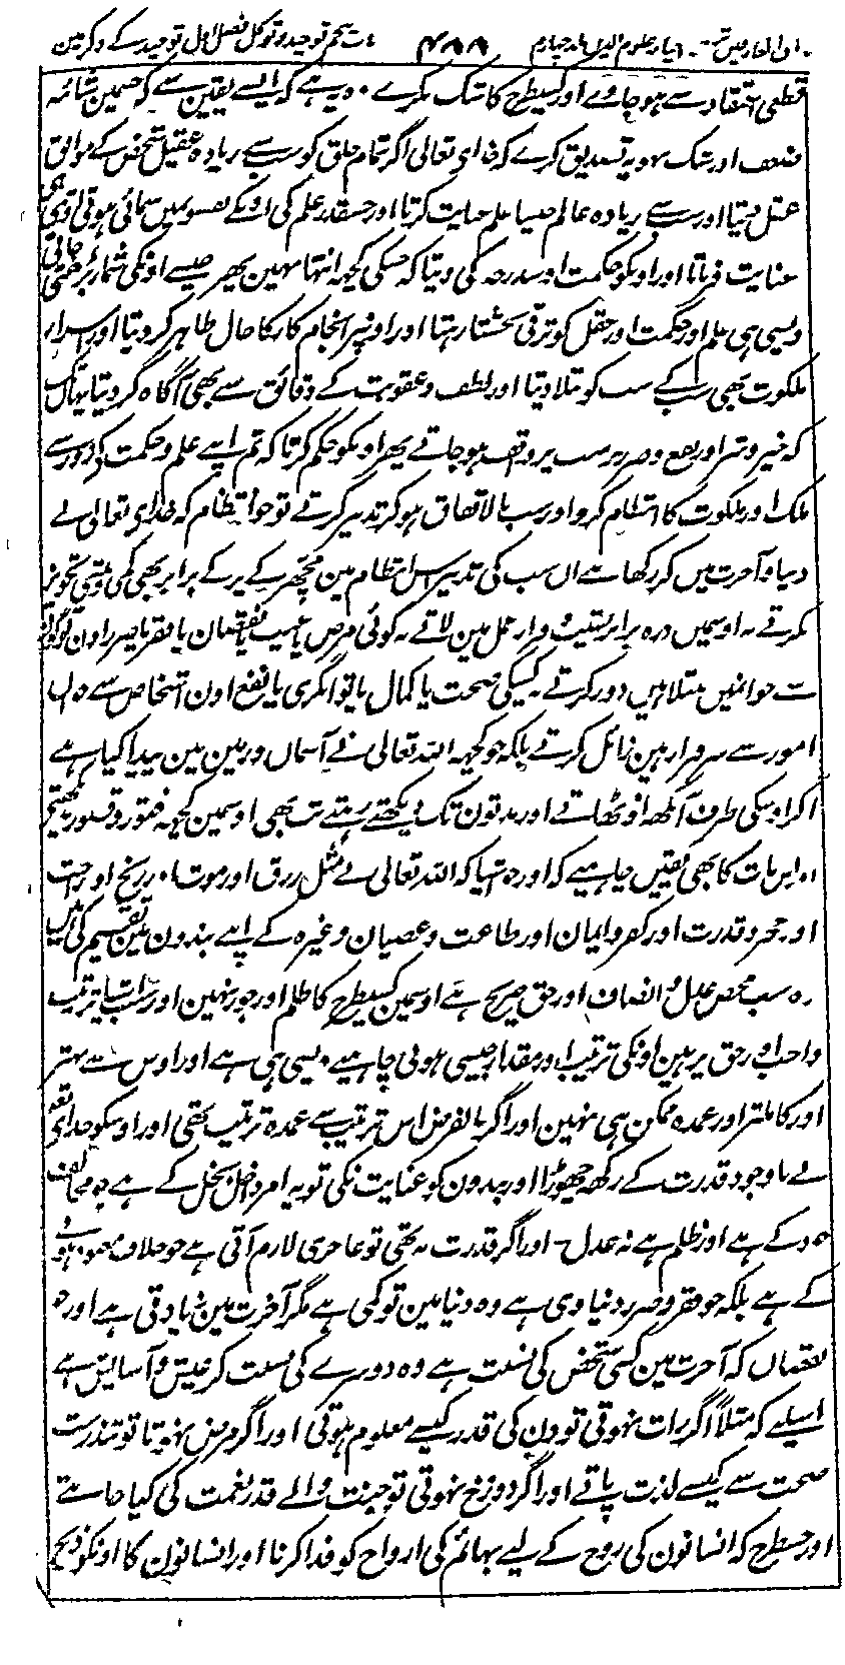 احیاء علوم الدین جلد چہارم ۴۸۸ توحید و توکل فصل اول توحید کے ذکر مین
قطعی اعتقاد سے ہو جاوے اور کسیطرح کا شک نکرے وہ یہ ہے کہ ایسے یقین سے کہ جسمین شائبہ
ضعف اور شک نہو یہ تصدیق کرے کہ خدای تعالی اگر تمام خلق کو سب سے زیادہ عقیل شخص کے موافق
عقل دیتا اور سب سے زیادہ عالم جیسا علم عنایت کرتا اور جسقدر علم کی اونکے نفسون مین سمائی ہوتی
عنایت فرماتا اور اونکو حکمت اوسدرجہ کی دیتا کہ جسکی کچہہ انتہا نہین پھر جیسے اونکی شمار بڑھتی جاتی
ویسی ہی علم اور حکمت اور عقل کو ترقی بخشتا رہتا اور اونپر انجام کار کا حال ظاہر کر دیتا اور اسرار
ملکوت بھی سب کے سب کو بتلا دیتا اور لطف و عقوبت کے دقائق سے بھی آگاہ کر دیتا یہانتک
کہ خیر و شر اور نفع و ضرر پر سب پر وقف ہو جاتے پھر اونکو حکم کرتا کہ تم اپنے علم و حکمت کے زور سے
ملک اور ملکوت کا انتظام کرو اور سب بالاتفاق ہو کر تدبیر کرتے تو جو انتظام کہ خدای تعالی نے
دنیا و آخرت مین کر رکھا ہے ان سب کی تدبیر اس انتظام مین مچھر کے پر کے برابر بھی کمی بیشی تجویز
نکرتے نہ اوسمین ذرہ برابر پستی و فراز عمل مین لاتے نہ کوئی مرض یا عیب یا نقصان یا فقر یا ضرر اون لوگونسے
جو انمین مبتلا ہین دور کرتے نہ کسیکی صحت یا کمال یا توانگری یا نفع اون اشخاص سے جو ان
امور سے سرفراز ہین زائل کرتے بلکہ جو کچہہ اللہ تعالی نے آسمان و زمین مین پیدا کیا ہے
اگر اوسکی طرف آنکھہ اوٹھاتے اور مدتون تک دیکھتے رہتے تب بھی اوسمین کچہہ فتور و قصور ندیکھتے
اور اس بات کا بھی یقین چاہیے کہ اور جو اشیا کہ اللہ تعالی نے مثل رزق اور موت اور رنج اور راحت
اور عجز و قدرت اور کفر و ایمان اور طاعت و عصیان وغیرہ کے اپنے بندون مین تقسیم کی ہین
وہ سب محض عدل و انصاف اور حق صریح ہے اوسمین کسیطرح کا ظلم اور جور نہین اور سب باترتیب
واجب اور حق پر ہین اونکی ترتیب اور مقدار جیسی ہونی چاہیے ویسی ہی ہے اور اوس سے بہتر
اور کاملتر اور عمدہ ممکن ہی نہین اور اگر بالفرض اس ترتیب سے عمدہ ترتیب تھی اور اوسکو خدای تعہ
نے باوجود قدرت کے رکھہ چھوڑا اور بندون کو عنایت نکی تو یہ امر داخل بخل کے ہے جو مخالف
جود کے ہے اور ظلم ہے نہ عدل۔ اور اگر قدرت نہ تھی تو عاجزی لازم آتی ہے جو خلاف معبود ہونے
کے ہے بلکہ جو فقر و ضرر دنیاوی ہے وہ دنیا مین تو کمی ہے مگر آخرت مین زیادتی ہے اور جو
نقصان کہ آخرت مین کسی شخص کی نسبت ہے وہ دوسرے کی نسبت کر عیش و آسایش ہے
اسلیے کہ مثلاً اگر رات نہوتی تو دن کی قدر کیسے معلوم ہوتی اور اگر مرض نہوتا تو تندرست
صحت سے کیسے لذت پاتے اور اگر دوزخ نہوتی تو جنت والے قدر نعمت کی کیا جانتے
اور جسطرح کہ انسانون کی روح کے لیے بہائم کی ارواح کو فدا کرنا اور انسانون کا اونکو ذبح